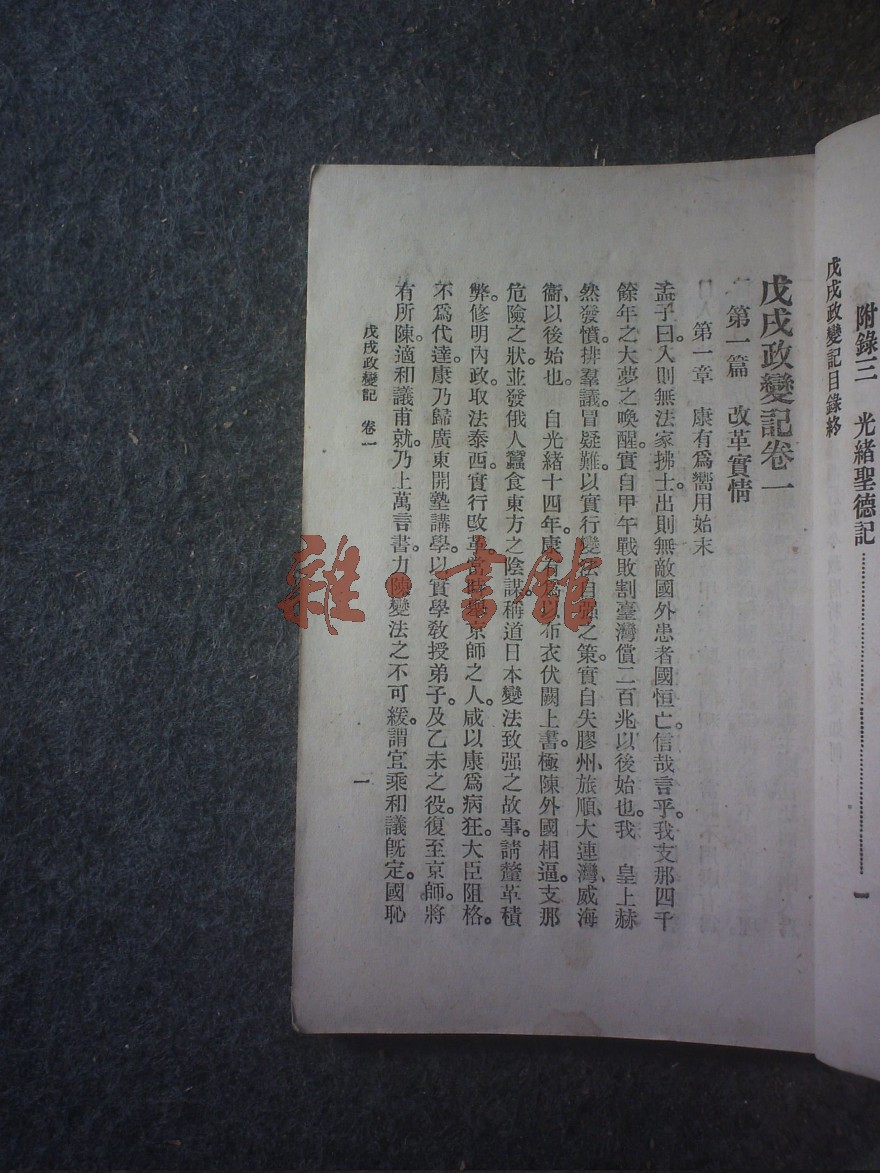 附錄三　光緒聖德記………………………………一
戊戌政變記目錄終
戊戌政變記卷一
第一篇　改革實情
第一章　康有爲嚮用始末
孟子曰入則無法家拂士出則無敵國外患者國恒亡。信哉言乎。我支那四千
餘年之大夢之喚醒。實自甲午戰敗割臺灣償二百兆以後始也。我　皇上赫
然發憤。排羣議。冒疑難。以實行變法自强之策。實自失膠州、旅順、大連灣、威海
衞、以後始也。　自光緒十四年。康有爲以布衣伏闕上書。極陳外國相逼。支那
危險之狀。並發俄人蠶食東方之陰謀。稱道日本變法致强之故事。請釐革積
弊。修明內政。取法泰西。實行改革。當時舉京師之人。咸以康爲病狂。大臣阻格。
不爲代達。康乃歸廣東開塾講學。以實學教授弟子。及乙未之役。復至京師。將
有所陳。適和議甫就。乃上萬言書。力陳變法之不可緩。謂宜乘和議旣定。國恥
戊戌政變記　卷一
一
雜·書館